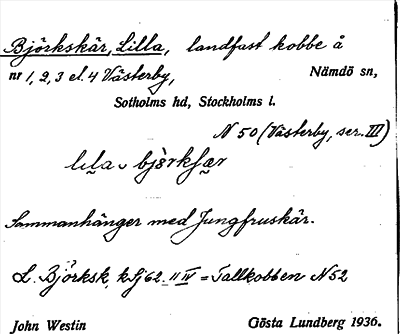 Björkskär, Lilla, landfast kobbe å
nr 1, 2, 3 el. 4 Västerby, Nämdö sn,
Sotholms hd, Stockholms l.
N 50 (Västerby, ser. III)
Sammanhänger med Jungfruskär.
L. Björksk. kfj 62 II IV = Tallkobben N 52
John Westin Gösta Lundberg 1936.